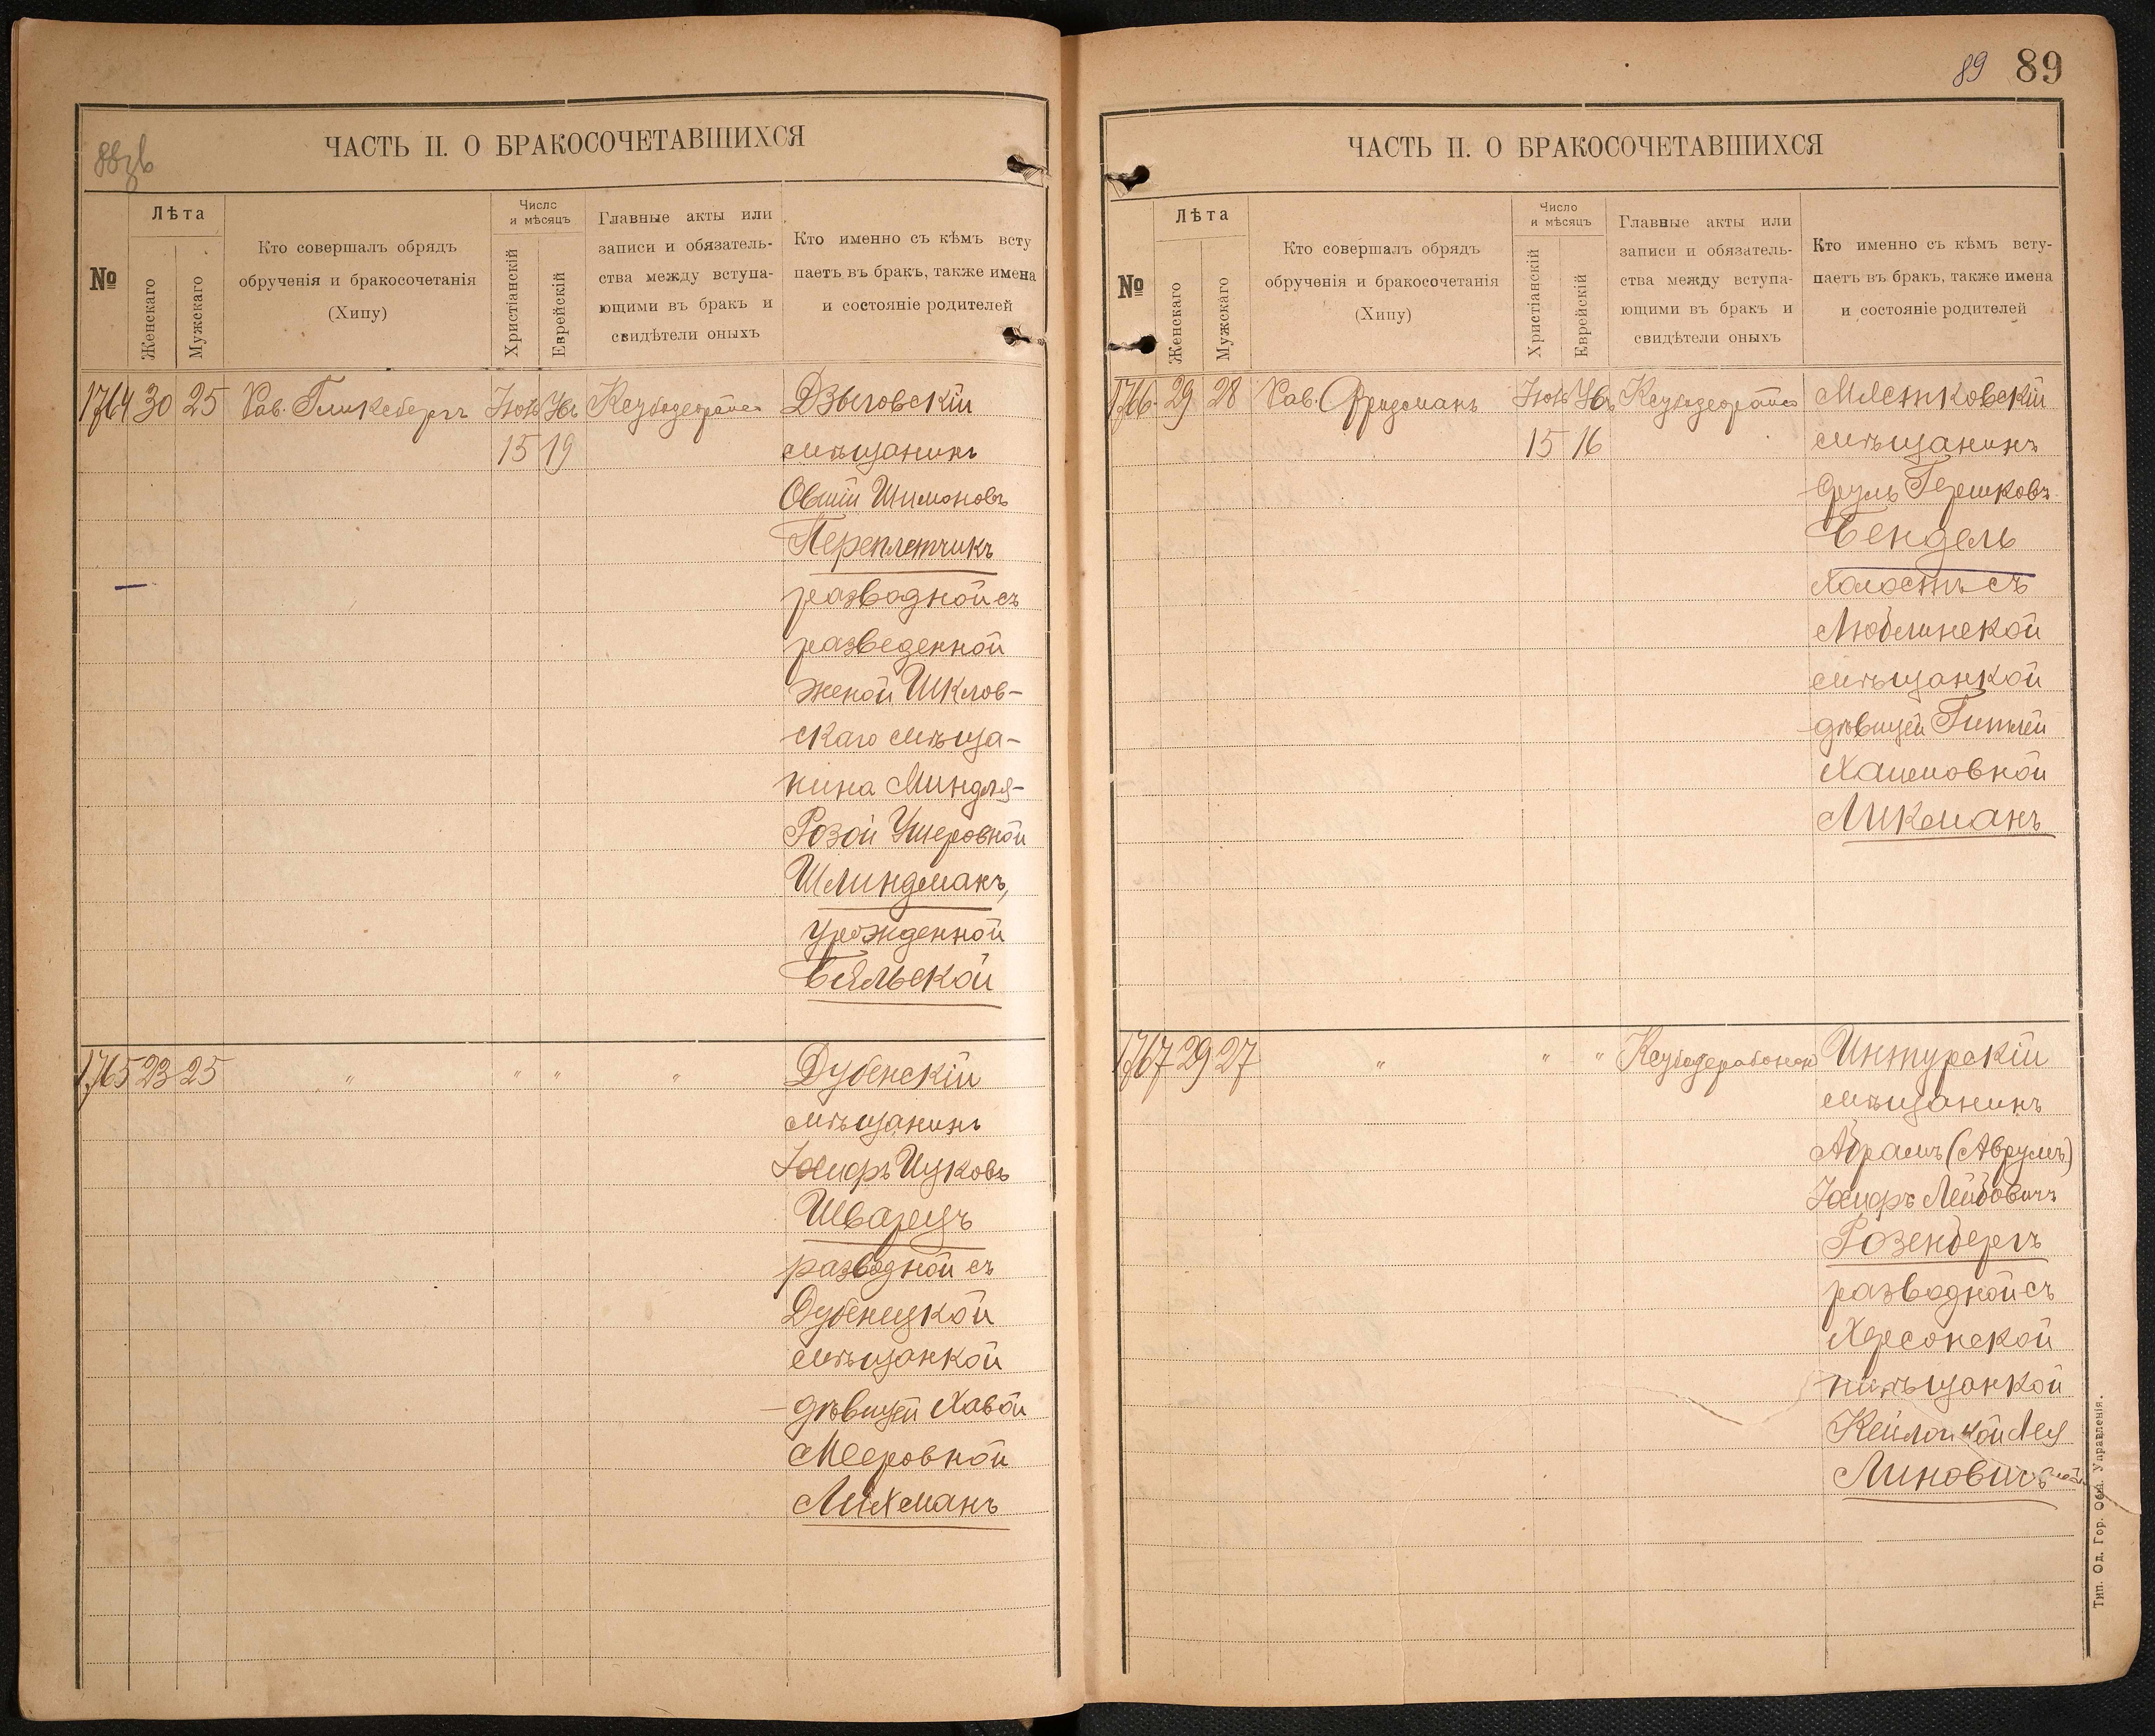 88об
ЧАСТЬ II. О БРАКОСОЧЕТАВШИХСЯ
№
Лѣта
Женскаго
Мужскаго
Кто совершалъ обрядъ
обрученія и бракосочетанія
(Хипу)
Число
и мѣсяцъ
Христіанскій
Еврейскій
Главные акты или
записи и обязатель-
ства между вступа-
ющими въ бракъ и
свидѣтели оныхъ
Кто именно съ кѣмъ всту
паетъ въ бракъ, также имена
и состояніе родителей
1764 30 25 Рав. Гликсбергъ
15 19
Дзыговскій
мѣщанинъ
Овшій Шимоновъ
Переплетчикъ
разводной съ
разведенной
женой Шклов-
скаго мѣща-
нина Миндля-
Розой Ушеровной
Шлиндманъ,
урожденной
Бяльской
1765 23 25 " " " "
Дубенскій
мѣщанинъ
Іосифъ Ицковъ
Шварцъ
разводной съ
Дубенецкой
мѣщанкой
дѣвицей Хавой
Мееровной
Лихманъ
89 89
ЧАСТЬ II. О БРАКОСОЧЕТАВШИХСЯ
№
Лѣта
Женскаго
Мужскаго
Кто совершалъ обрядъ
обрученія и бракосочетанія
(Хипу)
Число
и мѣсяцъ
Христіанскій
Еврейскій
Главные акты или
записи и обязатель-
ства между вступа-
ющими въ бракъ и
свидѣтели оныхъ
Кто именно съ кѣмъ всту-
паетъ въ бракъ, также имена
и состояніе родителей
1766 29 28 Рав. Фридманъ
15 16
Мястковскій
мѣщанинъ
Сруль Гершковъ
Бендель
холостъ съ
Люблинской
мѣщанкой
дѣвицей Гитлей
Хаимовной
Ликманъ
1767 29 27 " " "
Интурскій
мѣщанинъ
Абрамъ (Аврумъ)
Іосифъ Лейбовичъ
Розенбергъ
разводной съ
Херсонской
мѣщанкой
Лея
Линовичъ
Тип. Од. Гор. Общ. Управленія.